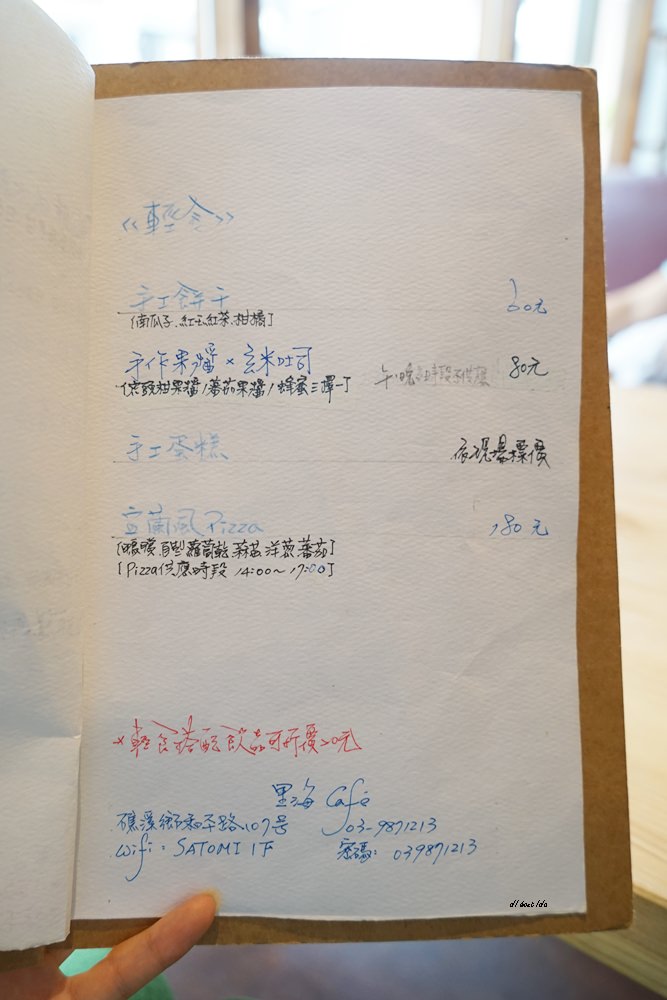 《輕食》
手工餅干 60元
[南瓜子.紅玉紅茶.柑橘]
手作果醬×玄米吐司 午.晚 時段不供應 80元
果醬/蕃茄果醬/蜂蜜三擇一]
手工蛋糕 依現場標價
宜蘭風Pizza 180元
[鴨賞 蘿蔔乾 蒜苗 洋蔥 蕃茄]
[Pizza供應時段 14:00~17:00]
×輕食搭配飲品可折價20元
里海 Café
礁溪鄉和平路107號 03-9871213
Wifi: SATOMI 1F 密碼: 039871213